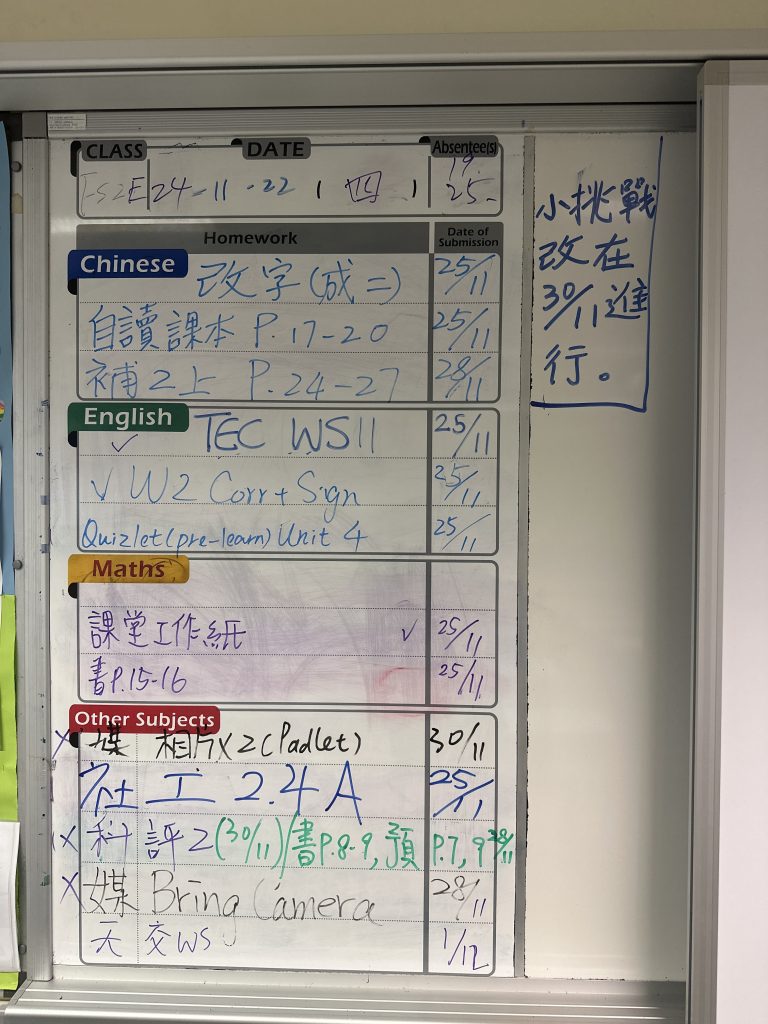 CLASS DATE Absentee(s)
19.
FS2E 24-11-22 ( 四 ) 25.
Homework Date of Submission
Chinese 改字(成二) 25/11
自讀課本 P.17-20 25/11
補2上 P.24-27 28/11
English TEC WS11 25/11
✓
✓ W2 Corr + Sign 25/11
Quizlet (pre-learn) Unit 4 25/11
Maths
課堂工作紙 ✓ 25/11
書P.15-16 25/11
Other Subjects
X 媒 相片X2 (Padlet) 30/11
社 工 2.4A 25/11
X 科 評2 (30/11)/書P.8-9, 預 P.7, 9 28/11
X 媒 Bring Camera 28/11
天 交WS 1/12
小挑戰
改在
30/11進
行。